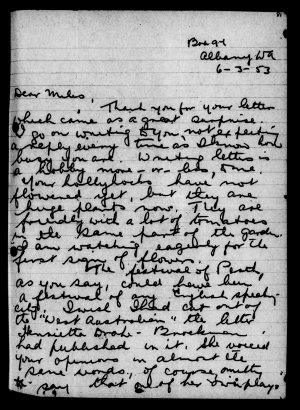 Box 94
Albany WA
6-3-53
Dear Miles,
Thank you for your letter
which came as a great surprise.
I go on writing to you not expecting
a reply every time as I know how
busy you are. Writing letters is
a hobby more-or-less, one.
Your hollyhocks have not
flowered yet, but they are
huge plants now. They are
friends with a lot of tomatoes
in the same part of the garden.
I am watching, eagerly for the
first sign of flowers.
The festival of Perth,
as you say, could have been
a festival of any English speaking
city. I wish I had cut out of
the "West Australian" the letter
Henrietta Drake Brockman
had published in it. She voiced
your opinions in almost the
same words, of course, omitting
say that one of her